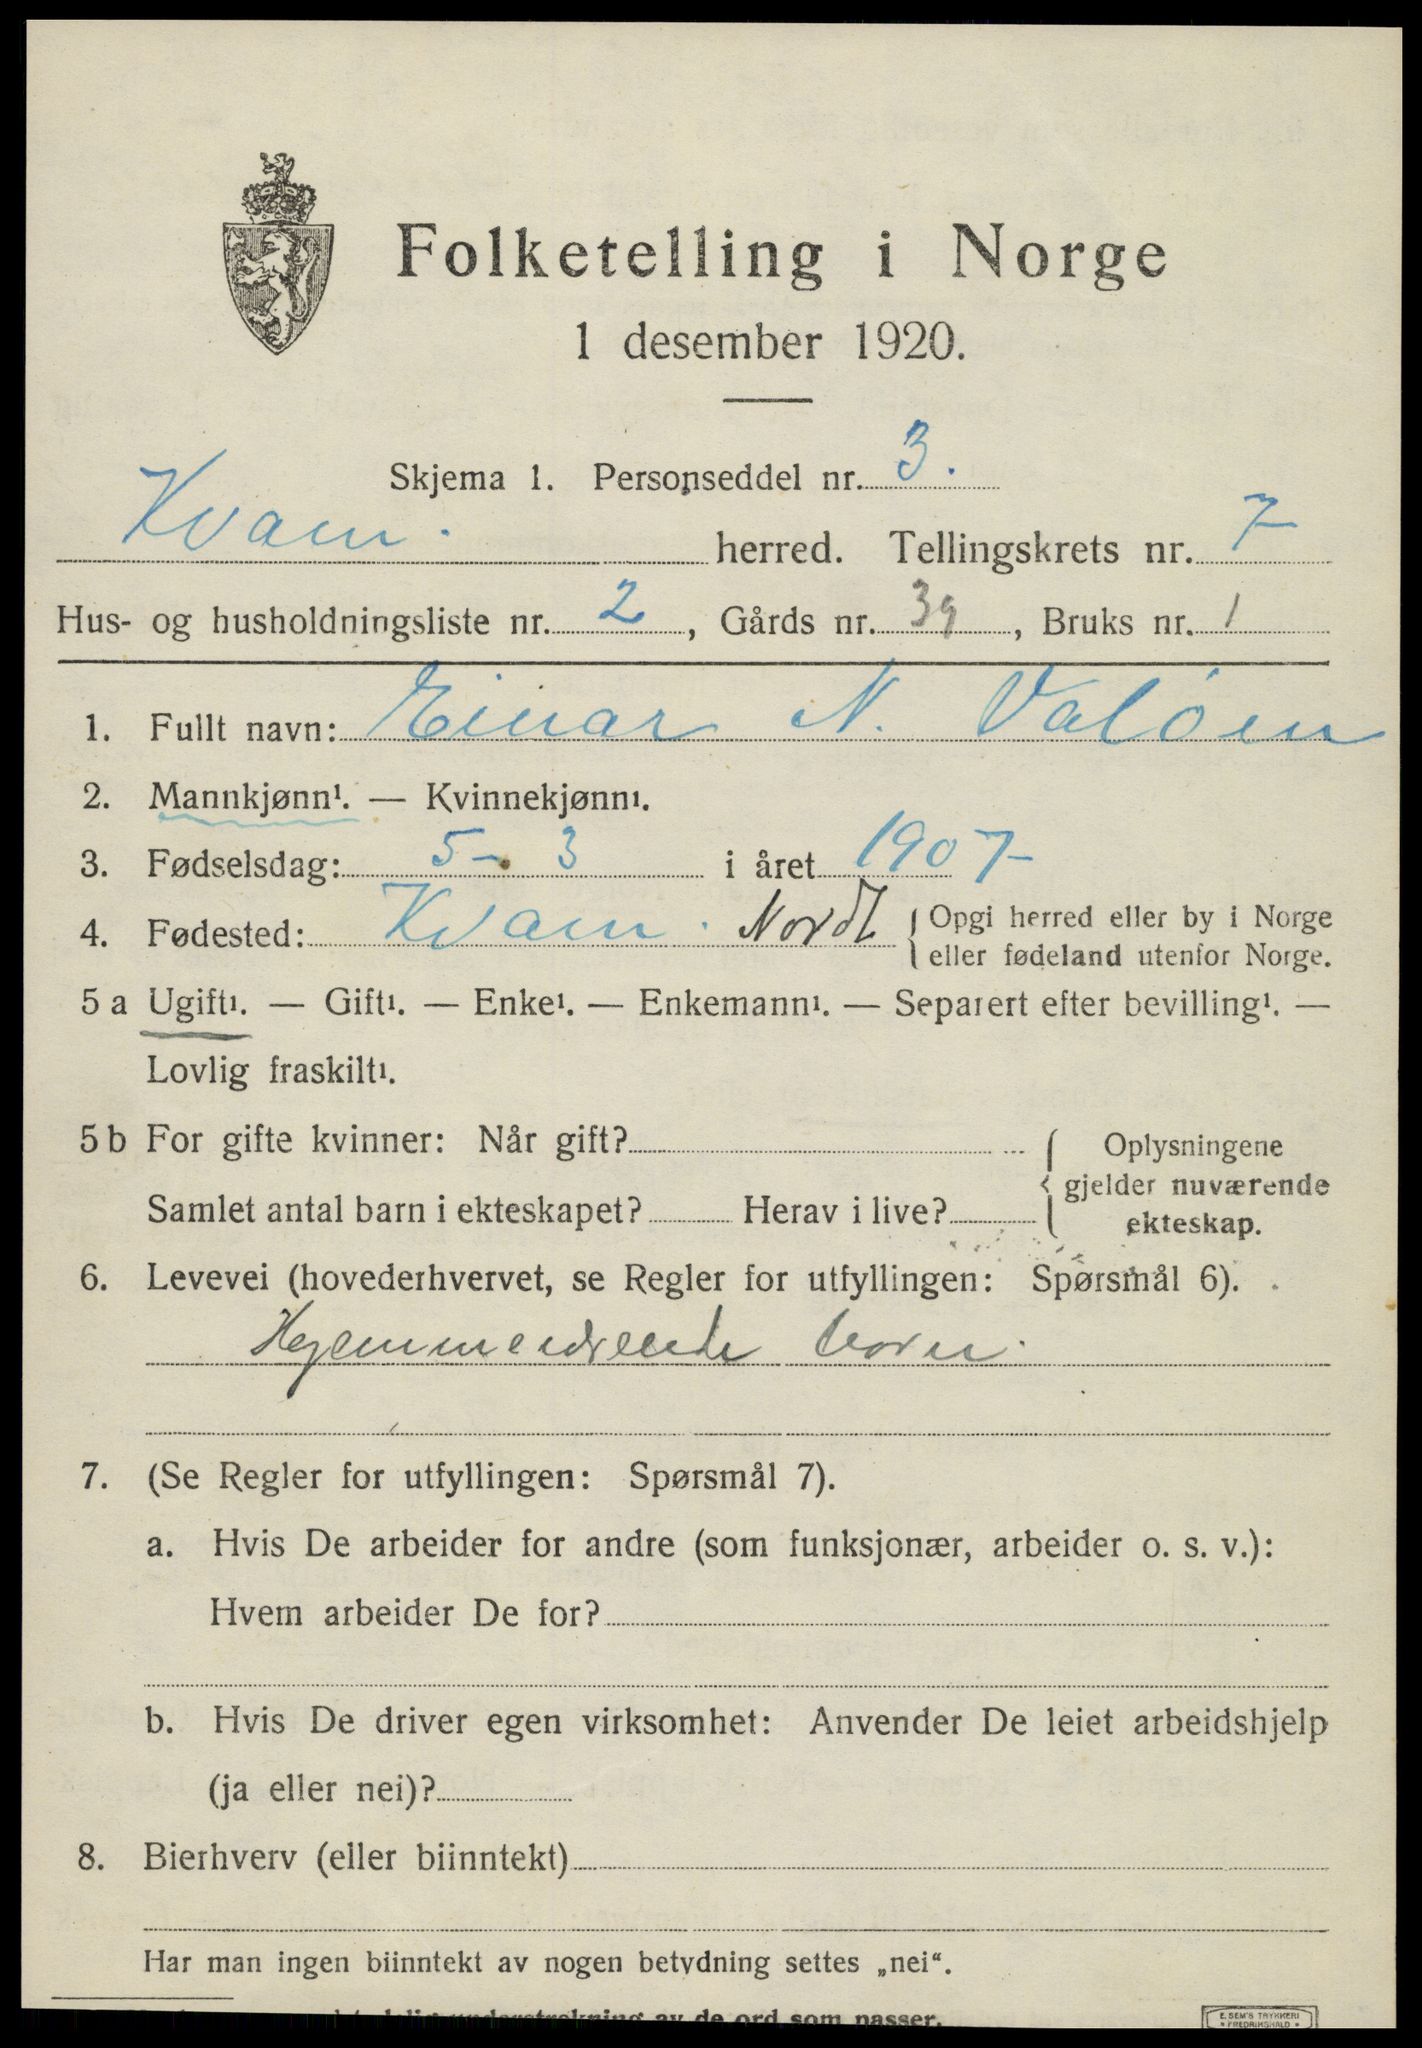 Folketelling i Norge
1 desember 1920.
Skjema 1. Personseddel nr. 3.
Kvam. herred. Tellingskrets nr. 7
Hus- og husholdningsliste nr. 2, Gårds nr. 39, Bruks nr. 1
1. Fullt navn: Einar N. Valöen
2. Mannkjønn¹. — Kvinnekjønn¹.
3. Fødselsdag: 5-3 i året 1907
4. Fødested: Kvam. Nordl { Opgi herred eller by i Norge
eller fødeland utenfor Norge.
5 a Ugift¹. — Gift¹. — Enke¹. — Enkemann¹. — Separert efter bevilling¹. —
Lovlig fraskilt¹.
5 b For gifte kvinner: Når gift? { Oplysningene
gjelder nuværende
Samlet antal barn i ekteskapet? Herav i live? ekteskap.
6. Levevei (hovederhvervet, se Regler for utfyllingen: Spørsmål 6).
Hjemmeværende barn.
7. (Se Regler for utfyllingen: Spørsmål 7).
a. Hvis De arbeider for andre (som funksjonær, arbeider o. s. v.):
Hvem arbeider De for?
b. Hvis De driver egen virksomhet: Anvender De leiet arbeidshjelp
(ja eller nei)?
8. Bierhverv (eller biinntekt)
Har man ingen biinntekt av nogen betydning settes „nei“.
understrekning av de ord som passer.
E. SEM'S TRYKKERI
FREDRIKSHALD